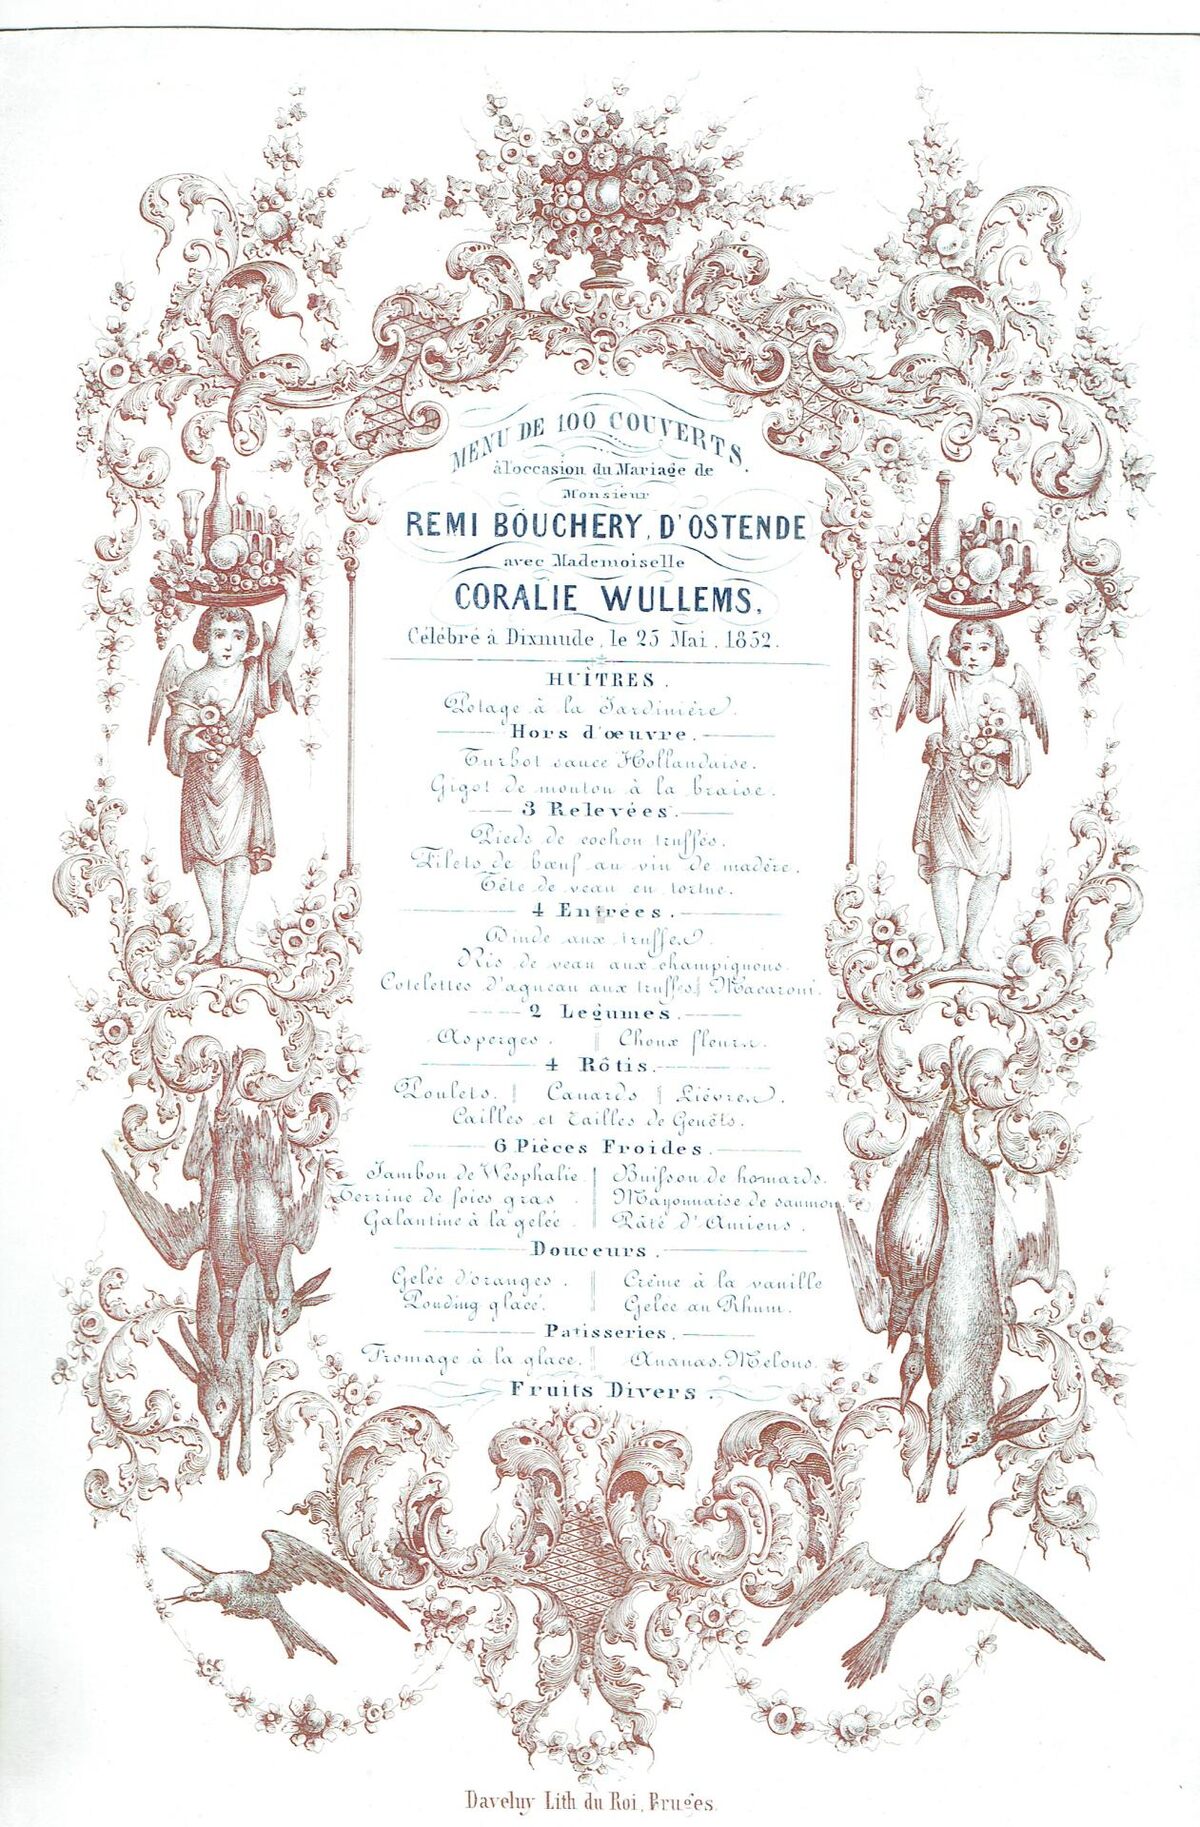 MENU DE 100 COUVERTS.
à l'occasion du Mariage de
Monsieur
REMI BOUCHERY, D'OSTENDE
avec Mademoiselle
CORALIE WULLEMS,
Célébré à Dixmude, le 25 Mai, 1852.
HUÎTRES.
Potage à la Jardinière.
Hors d'œuvre.
Turbot sauce Hollandaise.
Gigot de mouton à la braise.
3 Relevées.
Pieds de cochon truffés.
Filets de bœuf au vin de madère.
Tête de veau en tortue.
4 Entrées.
Dinde aux truffes.
Ris de veau aux champignons.
Cotelettes d'agneau aux truffes Macaroni.
2 Legumes.
Asperges. Choux fleurs.
4 Rôtis.
Poulets. Canards Lièvres.
Cailles et Tailles de Genêts.
6 Pièces Froides.
Jambon de Wesphalie. Buisson de homards.
Terrine de foies gras. Mayonnaise de saumon
Galantine à la gelée. Pâté d'Amiens.
Douceurs.
Gelée d'oranges. Crême à la vanille
Pouding glacé. Gelée au Rhum.
Patisseries.
Fromage à la glace. Ananas. Melons.
Fruits Divers.
Daveluy Lith du Roi, Bruges.